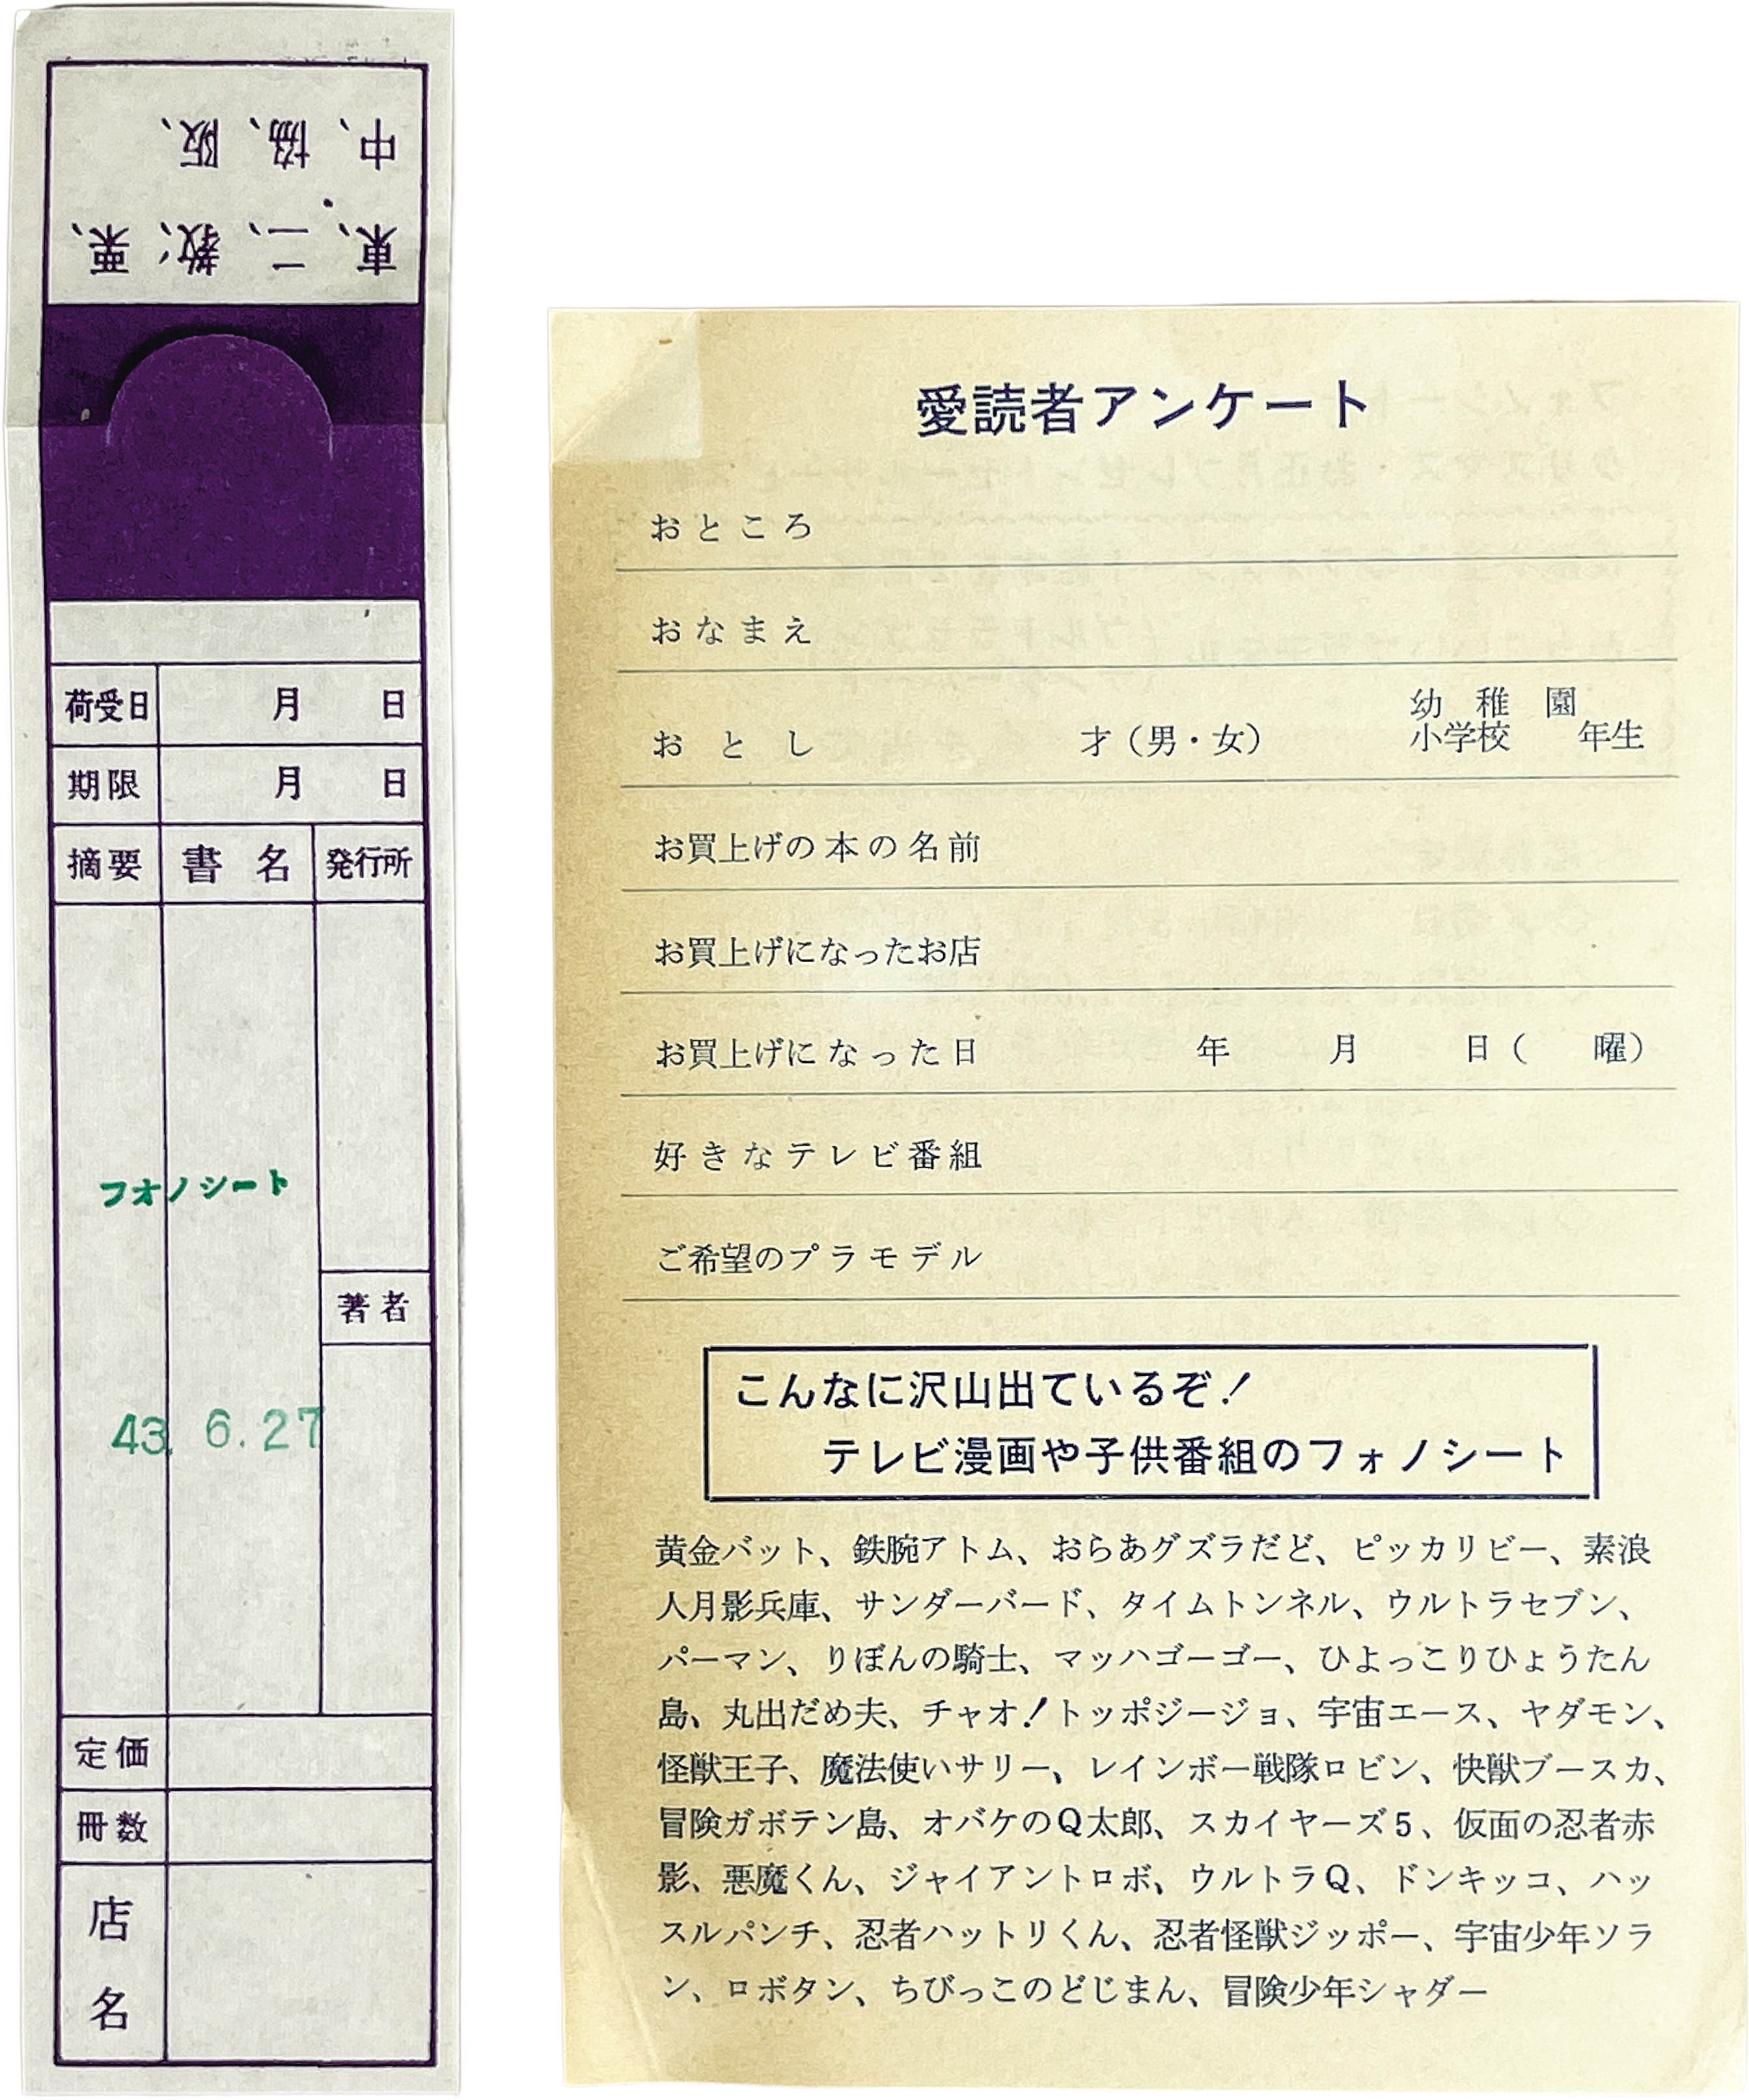 東、二、教、栗、
中、協、阪、
荷受日 月 日
期限 月 日
摘要 書名 発行所
フオノシート
著者
43. 6.27
定価
冊数
店名
愛読者アンケート
おところ
おなまえ
おとし 才(男・女) 幼稚園
小学校 年生
お買上げの本の名前
お買上げになったお店
お買上げになった日 年 月 日( 曜)
好きなテレビ番組
ご希望のプラモデル
こんなに沢山出ているぞ!
テレビ漫画や子供番組のフォノシート
黄金バット、鉄腕アトム、おらあグズラだど、ピッカリビー、素浪
人月影兵庫、サンダーバード、タイムトンネル、ウルトラセブン、
パーマン、りぼんの騎士、マッハゴーゴー、ひよっこりひょうたん
島、丸出だめ夫、チャオ!トッポジージョ、宇宙エース、ヤダモン、
怪獣王子、魔法使いサリー、レインボー戦隊ロビン、快獣ブースカ、
冒険ガボテン島、オバケのQ太郎、スカイヤーズ5、仮面の忍者赤
影、悪魔くん、ジャイアントロボ、ウルトラQ、ドンキッコ、ハッ
スルパンチ、忍者ハットリくん、忍者怪獣ジッポー、宇宙少年ソラ
ン、ロボタン、ちびっこのどじまん、冒険少年シャダー